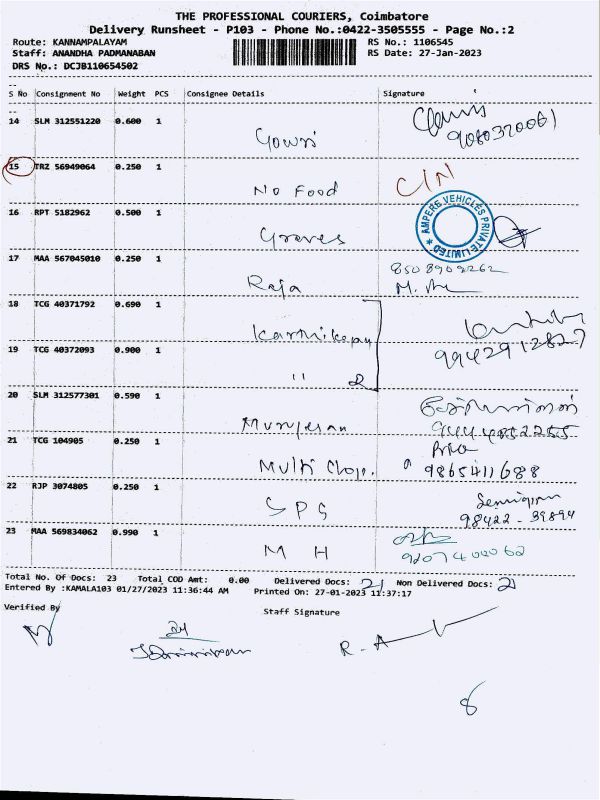 THE PROFESSIONAL COURIERS, Coimbatore
Delivery Runsheet - P103 - Phone No.:0422-3505555 - Page No.:2
Route: KANNAMPALAYAM RS No.: 1106545
Staff: ANANDHA PADMANABAN RS Date: 27-Jan-2023
DRS No.: DCJB110654502
--
S No Consignment No Weight PCS Consignee Details Signature
--
14 SLM 312551220 0.600 1
Gowri 9080370061
15 TRZ 56949064 0.250 1
No Food C/N
16 RPT 5182962 0.500 1
Graves AMPERE VEHICLES PRIVATE LIMITED
17 MAA 567045010 0.250 1 8508909262
Raja M.
18 TCG 40371792 0.690 1
Karthikepy
19 TCG 40372093 0.900 1 9942912827
" 2
20 SLM 312577301 0.590 1
Murugesan 9444852255
21 TCG 104905 0.250 1
Multi Chop. 9865411688
22 RJP 3074805 0.250 1
SPG 98422-39894
23 MAA 569834062 0.990 1
M H 9207400062
Total No. Of Docs: 23 Total COD Amt: 0.00 Delivered Docs: 21 Non Delivered Docs: 2
Entered By :KAMALA103 01/27/2023 11:36:44 AM Printed On: 27-01-2023 11:37:17
Verified By Staff Signature
R. A
8